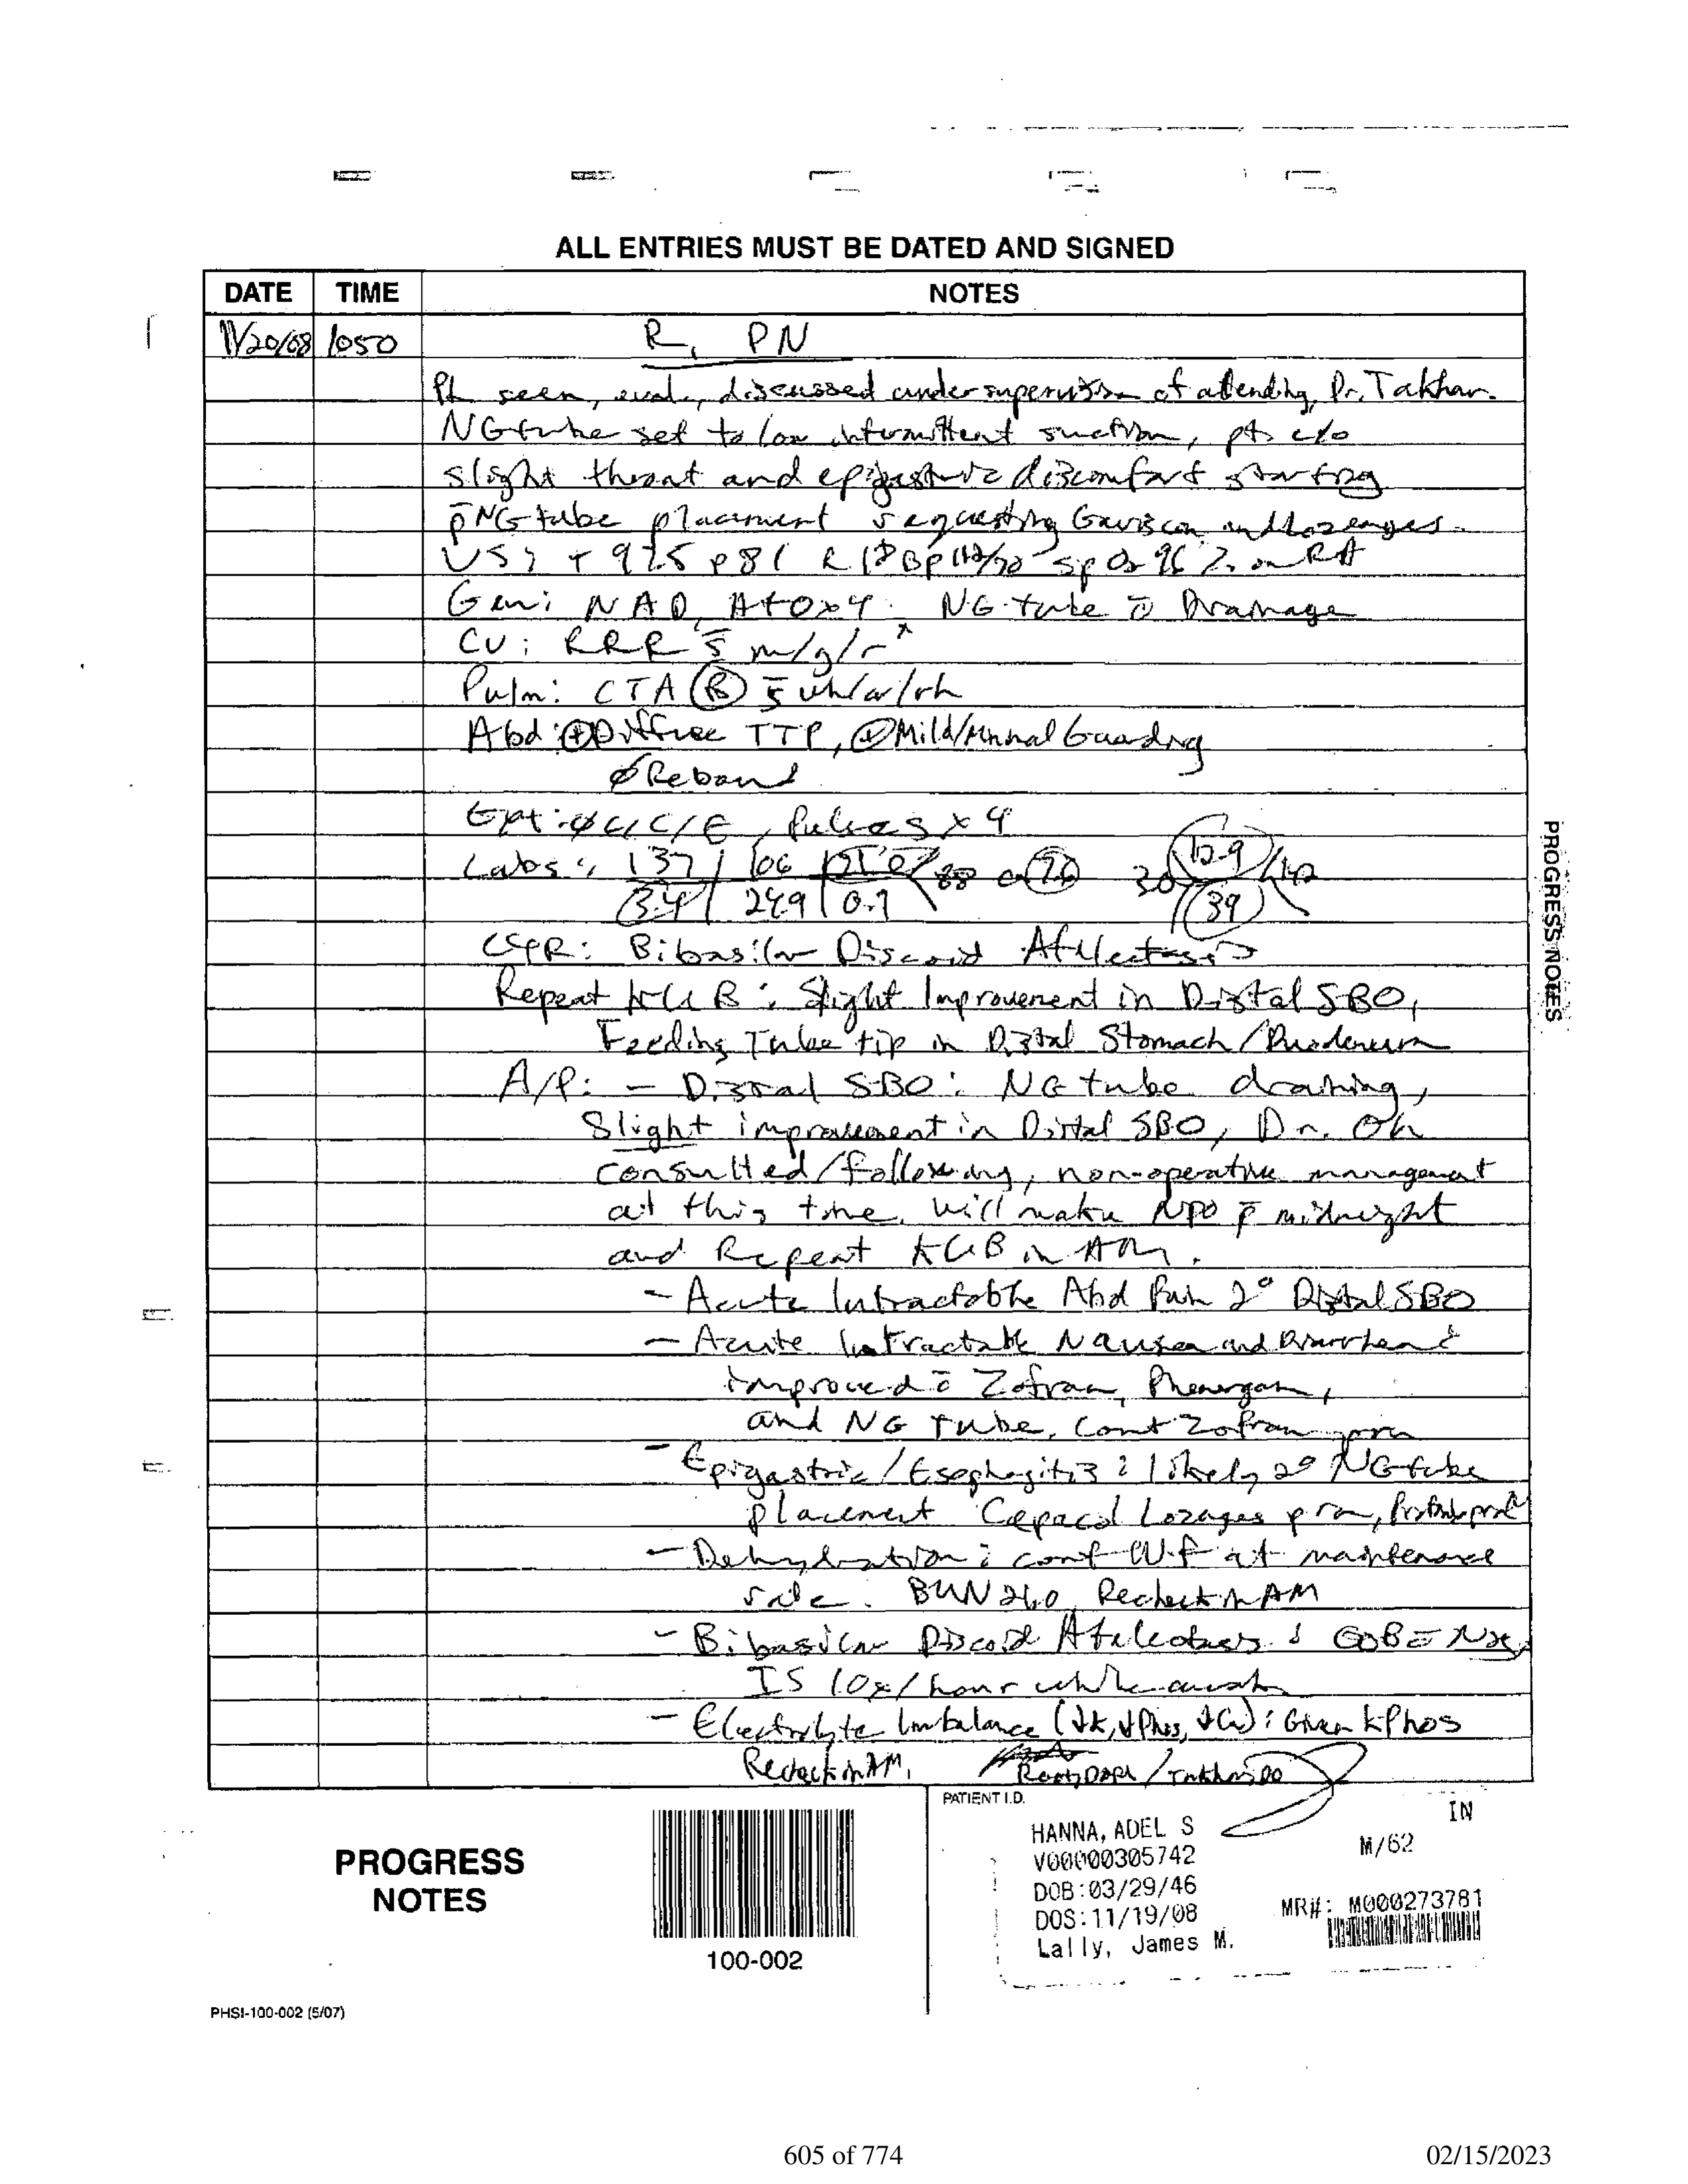 ALL ENTRIES MUST BE DATED AND SIGNED
DATE TIME NOTES
11/20/08 1050 R, PN
Pt seen, eval, discussed under supervision of attending, Dr. Takhar.
NG tube set to low intermittent suction, pt c/o
slight throat and epigastric discomfort starting
p̄ NG tube placement requesting Gaviscon and Lozenges.
VS: T 97.5 P 81 R 18 BP /70 SpO2 96% on RA
Gen: NAD, A+Ox4. NG tube c̄ Drainage
CV: RRR s̄ m/g/r
Pulm: CTA Ⓑ s̄ wh/r/rh
Abd: ⊕ Diffuse TTP, ⊕ Mild/Minimal Guarding
Ø Rebound
Ext: Ø C/C/E, Pulses x 4
Labs: 137 106 88 30 12.9 142
3.4 24.9 0.7 39
CXR: Bibasilar Discoid Atelectasis
Repeat KUB: Slight Improvement in Distal SBO,
Feeding Tube tip in Distal Stomach/Duodenum
A/P: - Distal SBO: NG tube draining,
Slight improvement in Distal SBO, Dr. Oh
consulted/following, non-operative management
at this time. Will make NPO p̄ midnight
and Repeat KUB in AM.
- Acute Intractable Abd Pain 2° Distal SBO
- Acute Intractable Nausea and Diarrhea:
improved c̄ Zofran, Phenergan,
and NG tube. Cont Zofran prn
- Epigastric/Esophagitis: likely 2° NG tube
placement Cepacol Lozages prn,
- Dehydration: cont IVF at maintenance
rate. BUN 26.0 Recheck in AM
- Bibasilar Discoid Atelectasis:
IS 10x/hour while awake
- Electrolyte Imbalance (↓K, ↓Phos, ↓Ca): Given KPhos
Recheck in AM. / Takhar DO
PROGRESS NOTES
PROGRESS
NOTES
100-002
PATIENT I.D.
IN
HANNA, ADEL S
M/62
V00000305742
DOB:03/29/46
MR#: M000273781
DOS:11/19/08
Lally, James M.
PHSI-100-002 (5/07)
605 of 774
02/15/2023